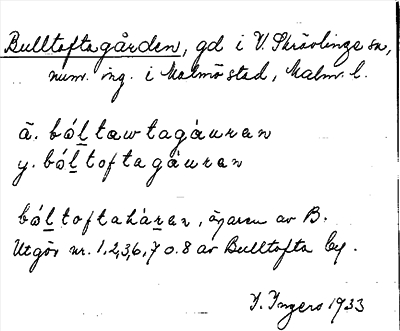 Bulltoftagården, gd i V. Skrävlinge sn,
num. ing. i Malmö stad, Malm. l.
ä. bóltawtagáuran
y. bóltoftagáuran
bóltoftaháran, ägaren av B.
Utgör nr. 1,2,3,6,7 o. 8 av Bulltofta by.
I. Ingers 1933